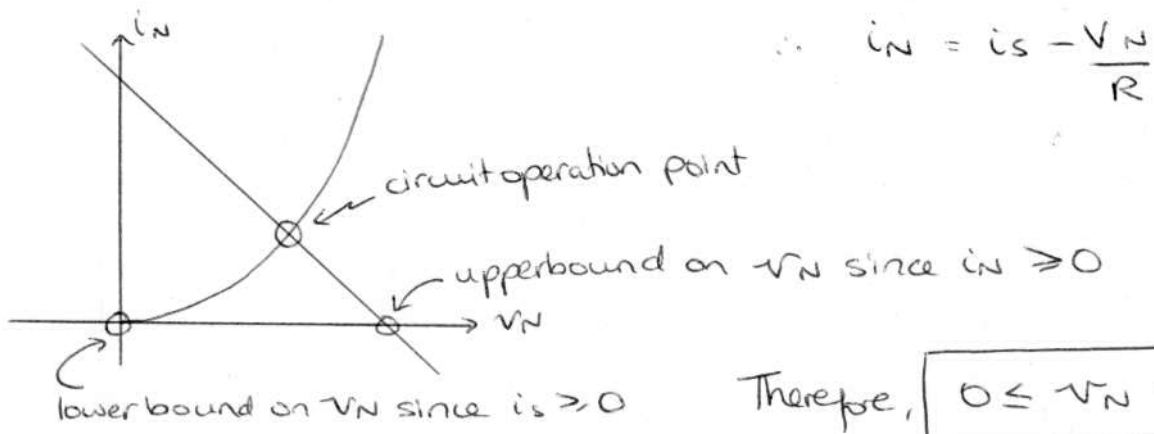 iN
∴ iN = is - VN
R
circuit operation point
upperbound on vN since iN ≥ 0
vN
lower bound on vN since is ≥ 0
Therefore, 0 ≤ vN